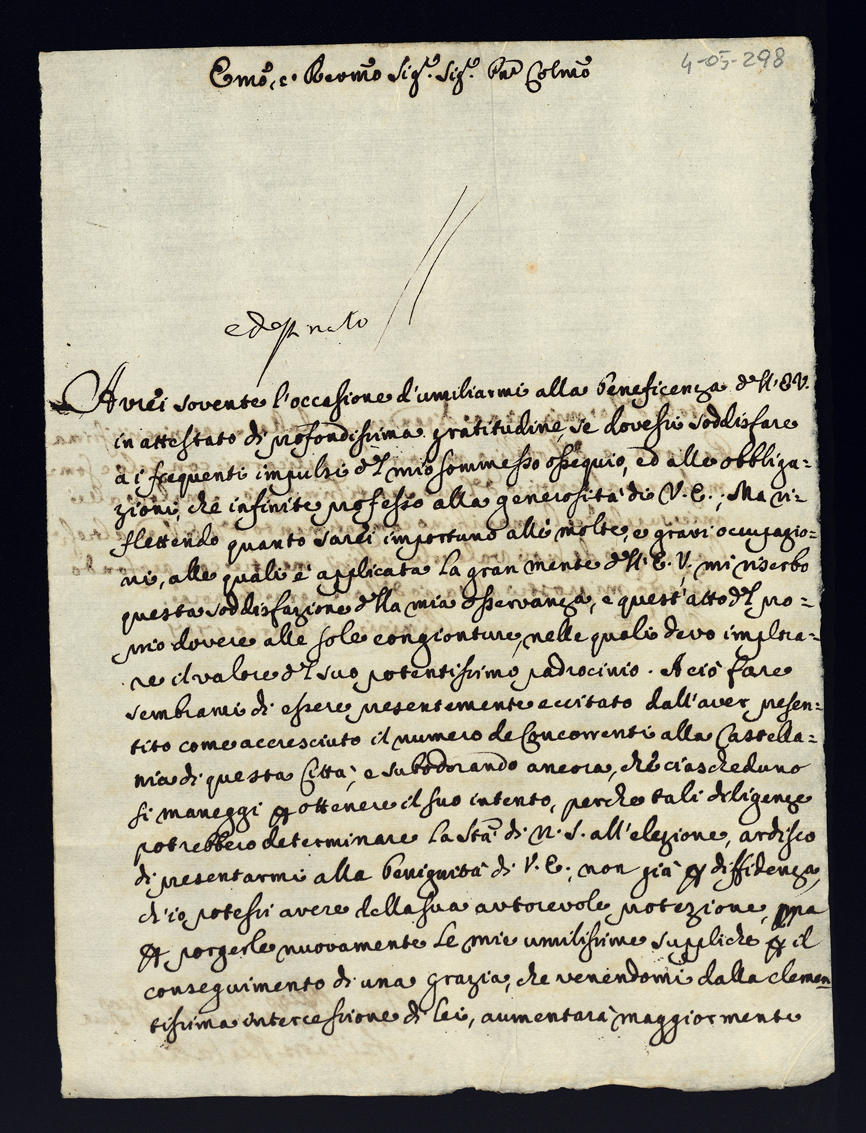 4-05-298
Emo, e Revmo Sigr. Sigr. Pne Colmo
Avrei sovente l'occasione d'umiliarmi alla beneficenza dell'E.V.
in attestato di profondissima gratitudine, se dovessi soddisfare
a i frequenti impulsi del mio sommesso ossequio, ed alle obbliga=
zioni, che infinite professo alla generosità di V. E.; Ma ri=
flettendo quanto sarei importuno alle molte, e gravi occupazio=
ni, alle quali è applicata la gran mente dell'E. V. mi riserbo
questa soddisfazione della mia osservanza, e quest'atto del pro=
prio dovere alle sole congionture, nelle quali devo implora=
re il valore del suo potentissimo padrocinio. A ciò fare
sembrami di essere presentemente eccitato dall'aver presen=
tito come accresciuto il numero de Concorrenti alla Castella=
nia di questa Città, e subodorando ancora, che ciascheduno
si maneggi per ottenere il suo intento, perche tali diligenze
potrebbero determinare la Stà di N. S. all'elezione, ardisco
di presentarmi alla benignità di V. E.; non già per diffidenza,
ch'io potessi avere della sua autorevole protezione, ma
per porgerle nuovamente le mie umilissime suppliche per il
conseguimento di una grazia, che venendomi dalla clemen
tissima intercessione di lei, aumentarà maggiormente